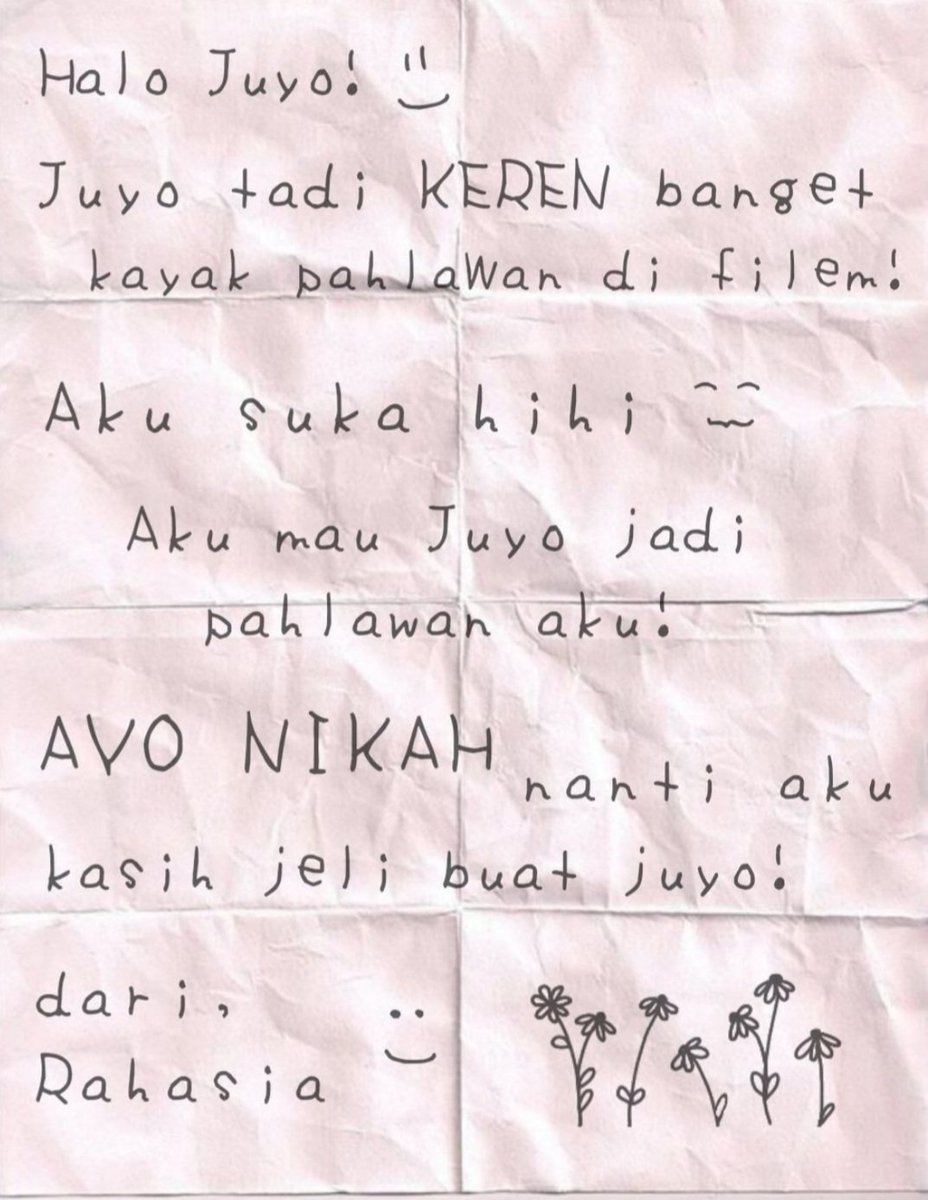 Halo Juyo!
Juyo tadi KEREN banget
kayak pahlawan di filem!
Aku suka hihi
Aku mau Juyo jadi
pahlawan aku!
AYO NIKAH nanti aku
kasih jeli buat juyo!
dari,
Rahasia